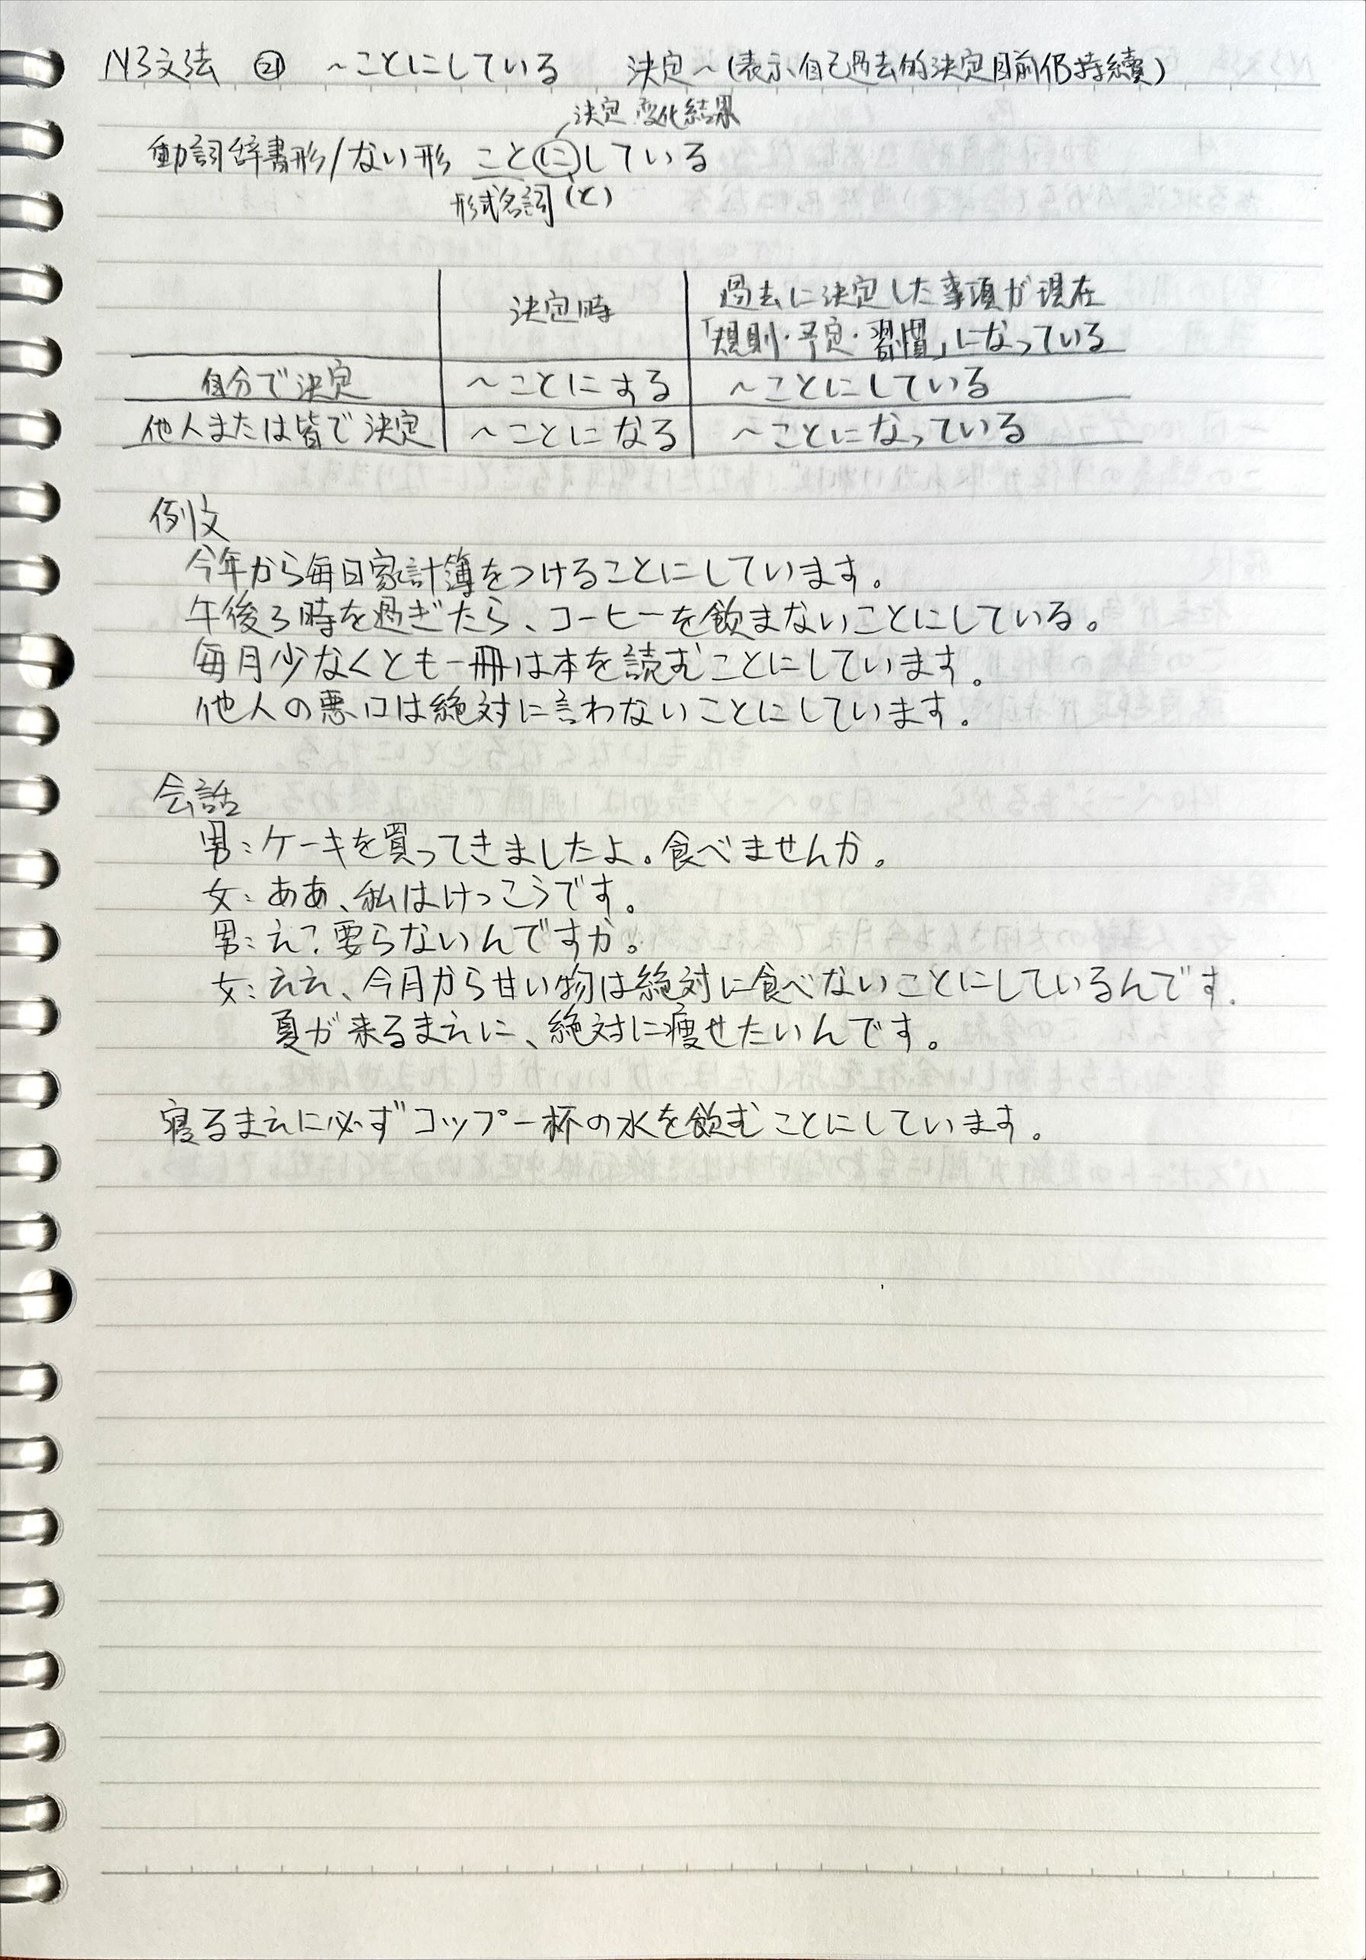 N3文法 ㉑ ～ことにしている 決定～(表示自己過去的決定目前仍持續)
決定 変化結果
動詞辞書形/ない形 ことにしている
形式名詞 (と)
決定時 過去に決定した事項が現在
「規則・予定・習慣」になっている
自分で決定 ～ことにする ～ことにしている
他人または皆で決定 ～ことになる ～ことになっている
例文
今年から毎日家計簿をつけることにしています。
午後3時を過ぎたら、コーヒーを飲まないことにしている。
毎月少なくとも一冊は本を読むことにしています。
他人の悪口は絶対に言わないことにしています。
会話
男：ケーキを買ってきましたよ。食べませんか。
女：ああ、私はけっこうです。
男：え？要らないんですか。
女：ええ、今月から甘い物は絶対に食べないことにしているんです。
夏が来るまえに、絶対に痩せたいんです。
寝るまえに必ずコップ一杯の水を飲むことにしています。